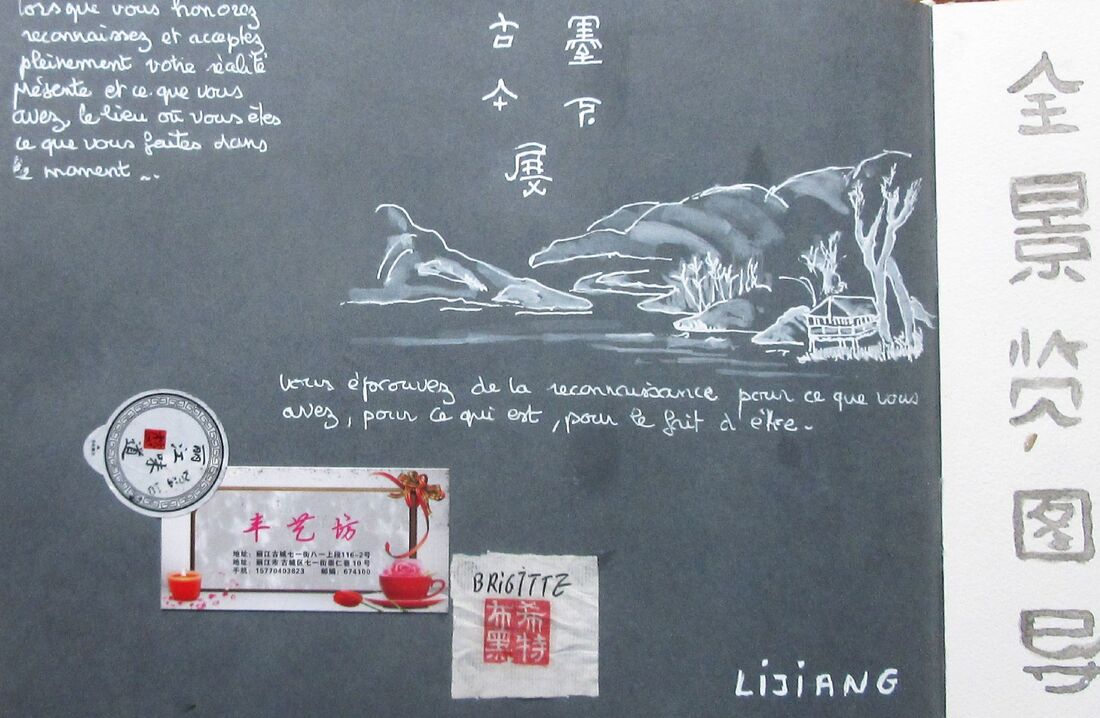 lorsque vous honorez
reconnaissez et acceptez
pleinement votre réalité
présente et ce que vous
avez, le lieu où vous êtes
ce que vous faites dans
le moment ...
古
今
展
墨
全
景
图
vous éprouvez de la reconnaissance pour ce que vous
avez, pour ce qui est, pour le fait d'être.
丽江味道
丰艺坊
地址：丽江古城七一街八一上段116-2号
地址：丽江市古城区七一街崇仁巷10号
手机：15770403823 邮编：674100
BRIGITTE
布 希
黑 特
LIJIANG